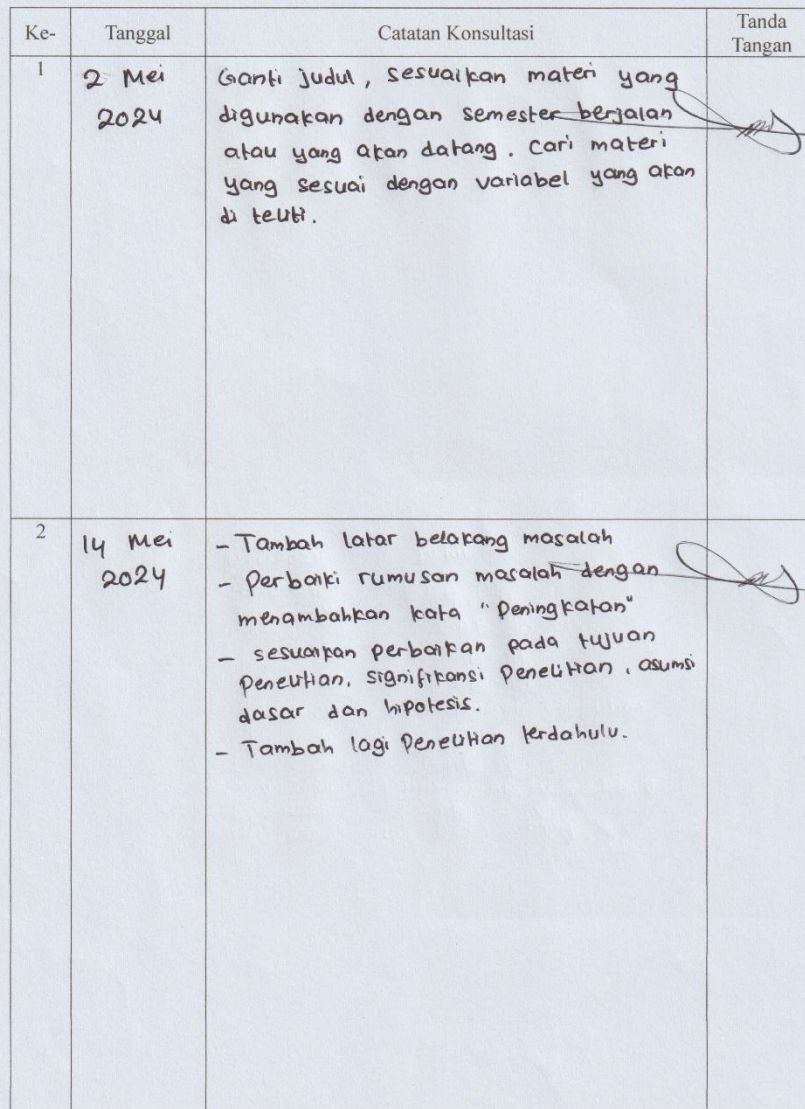 Ke- Tanggal Catatan Konsultasi Tanda Tangan
1
2 Mei
2024
Ganti judul, sesuaikan materi yang
digunakan dengan semester berjalan
atau yang akan datang. Cari materi
yang sesuai dengan variabel yang akan
di teliti.
2
14 Mei
2024
- Tambah latar belakang masalah
- Perbaiki rumusan masalah dengan
menambahkan kata "Peningkatan"
- sesuaikan perbaikan pada tujuan
Penelitian, signifikansi Penelitian, asumsi
dasar dan hipotesis.
- Tambah lagi Penelitian terdahulu.